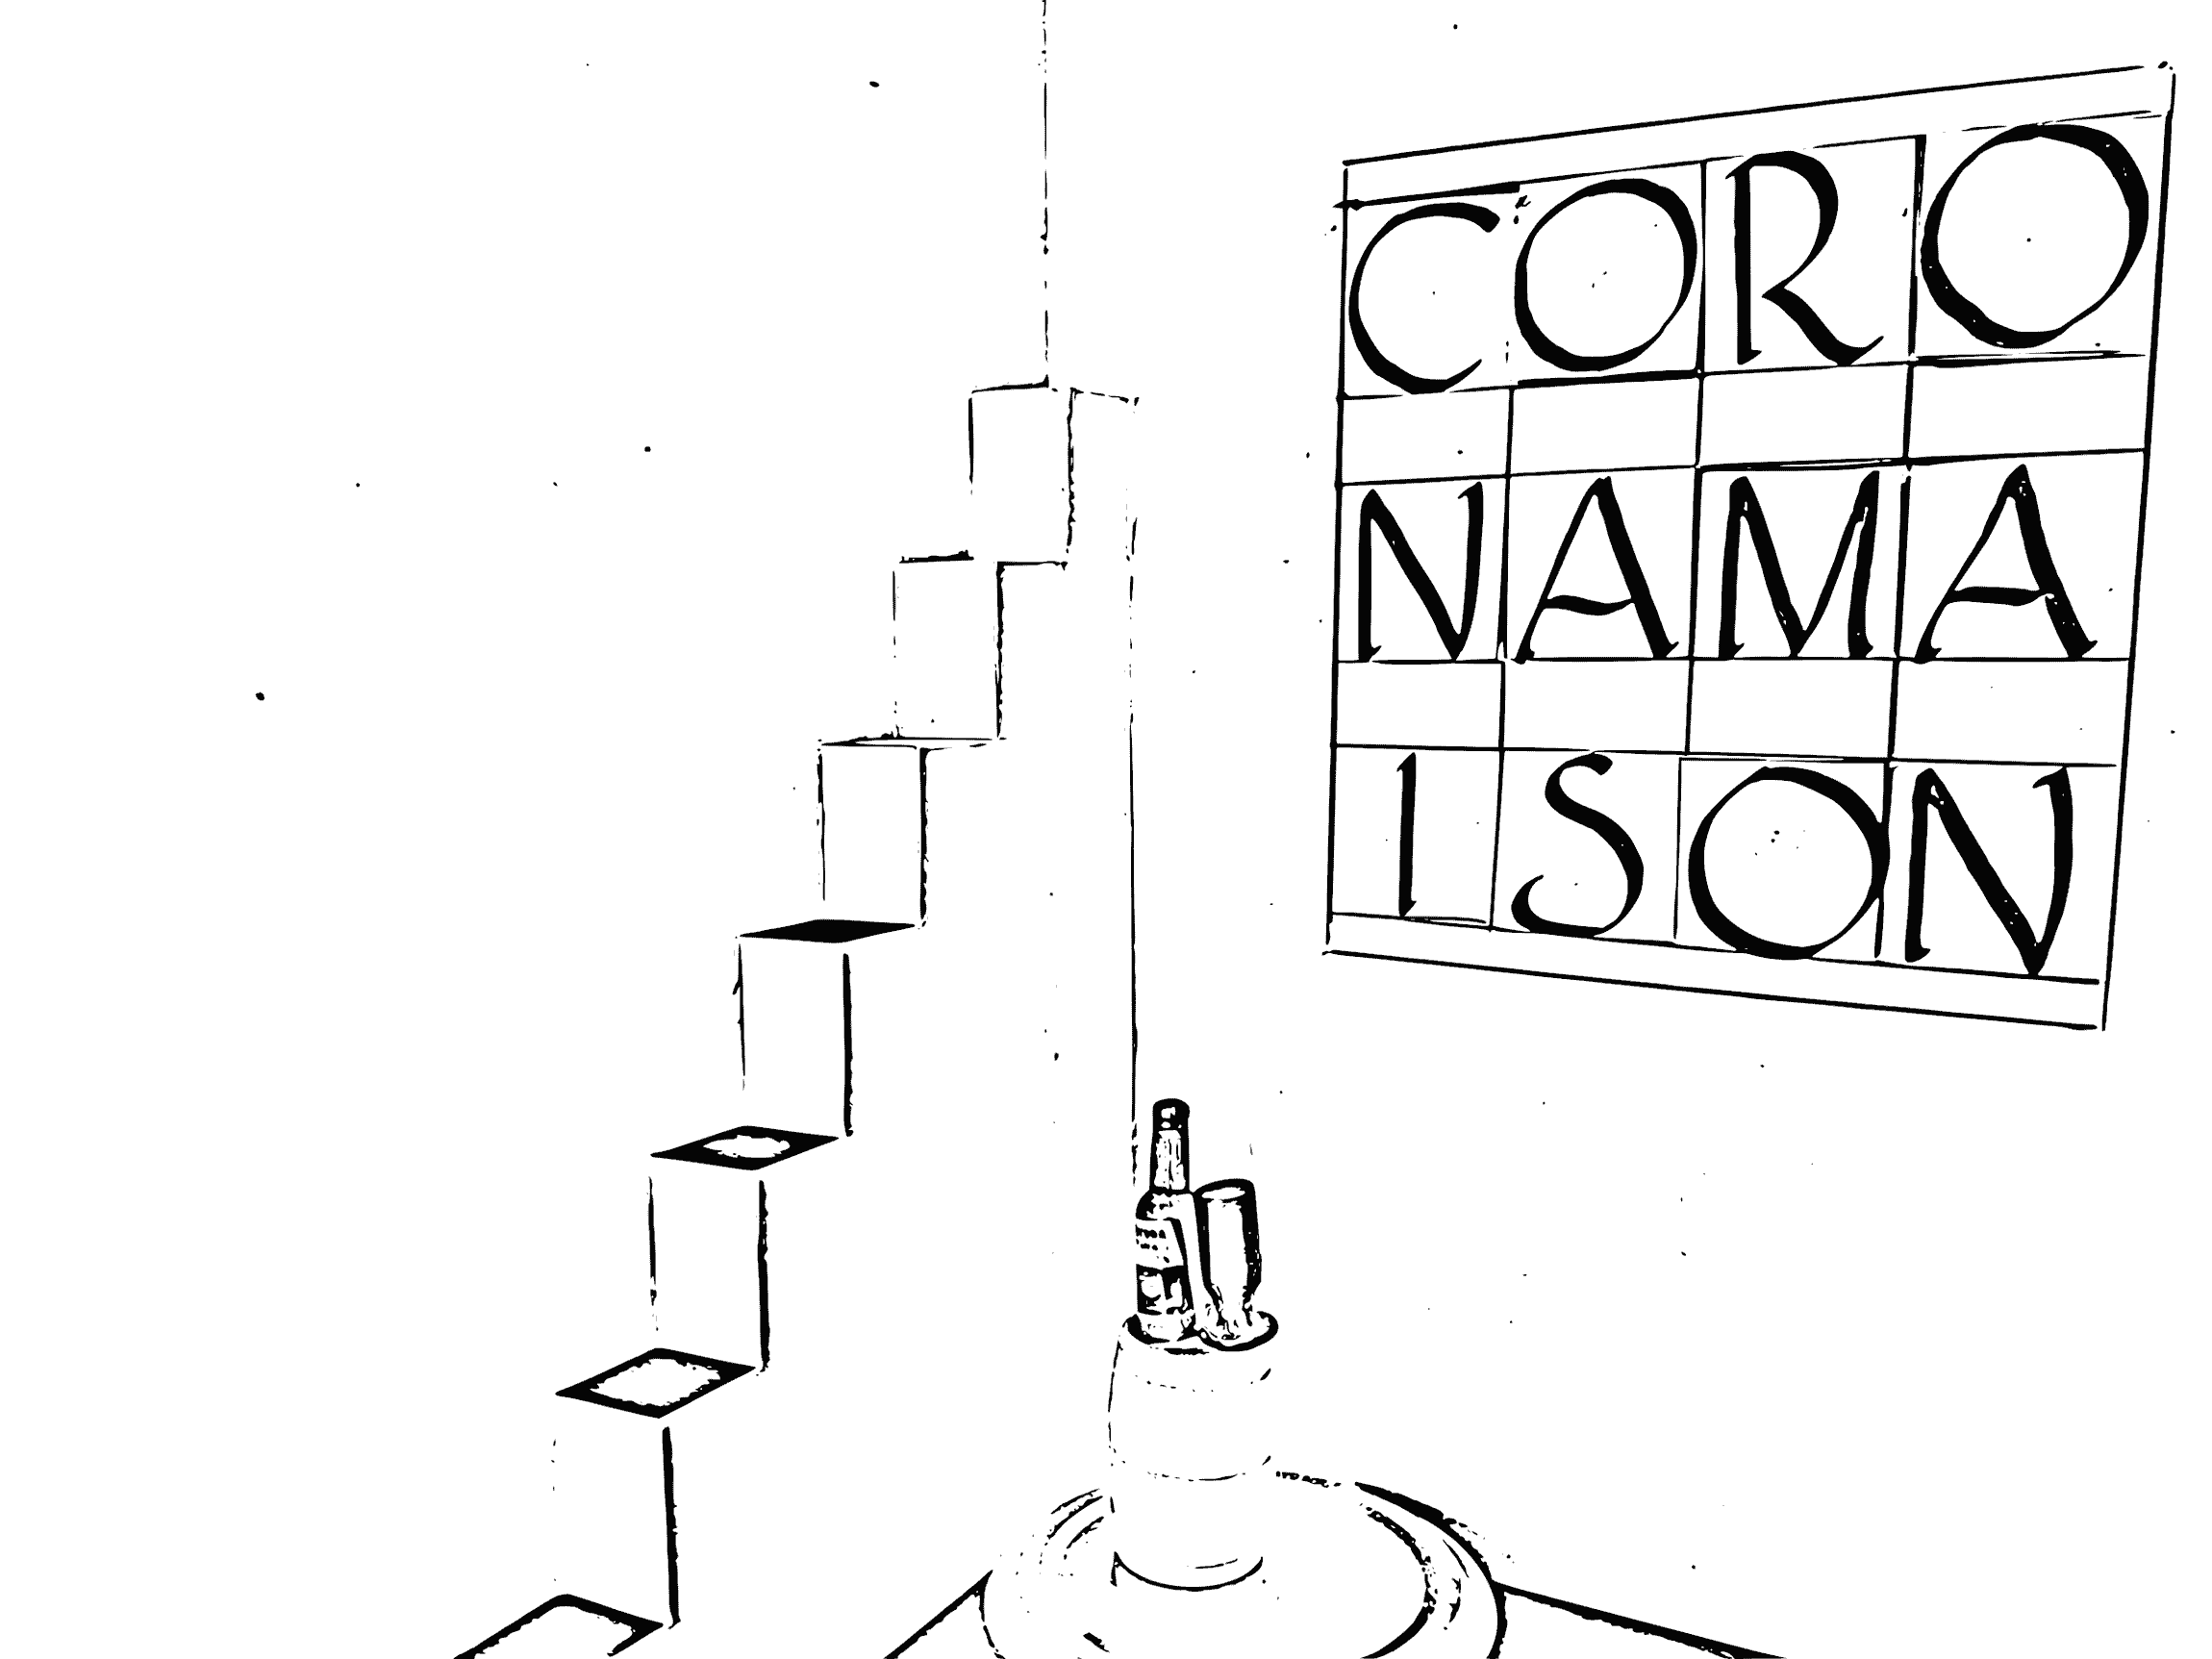 CORO
NAMA
ISON